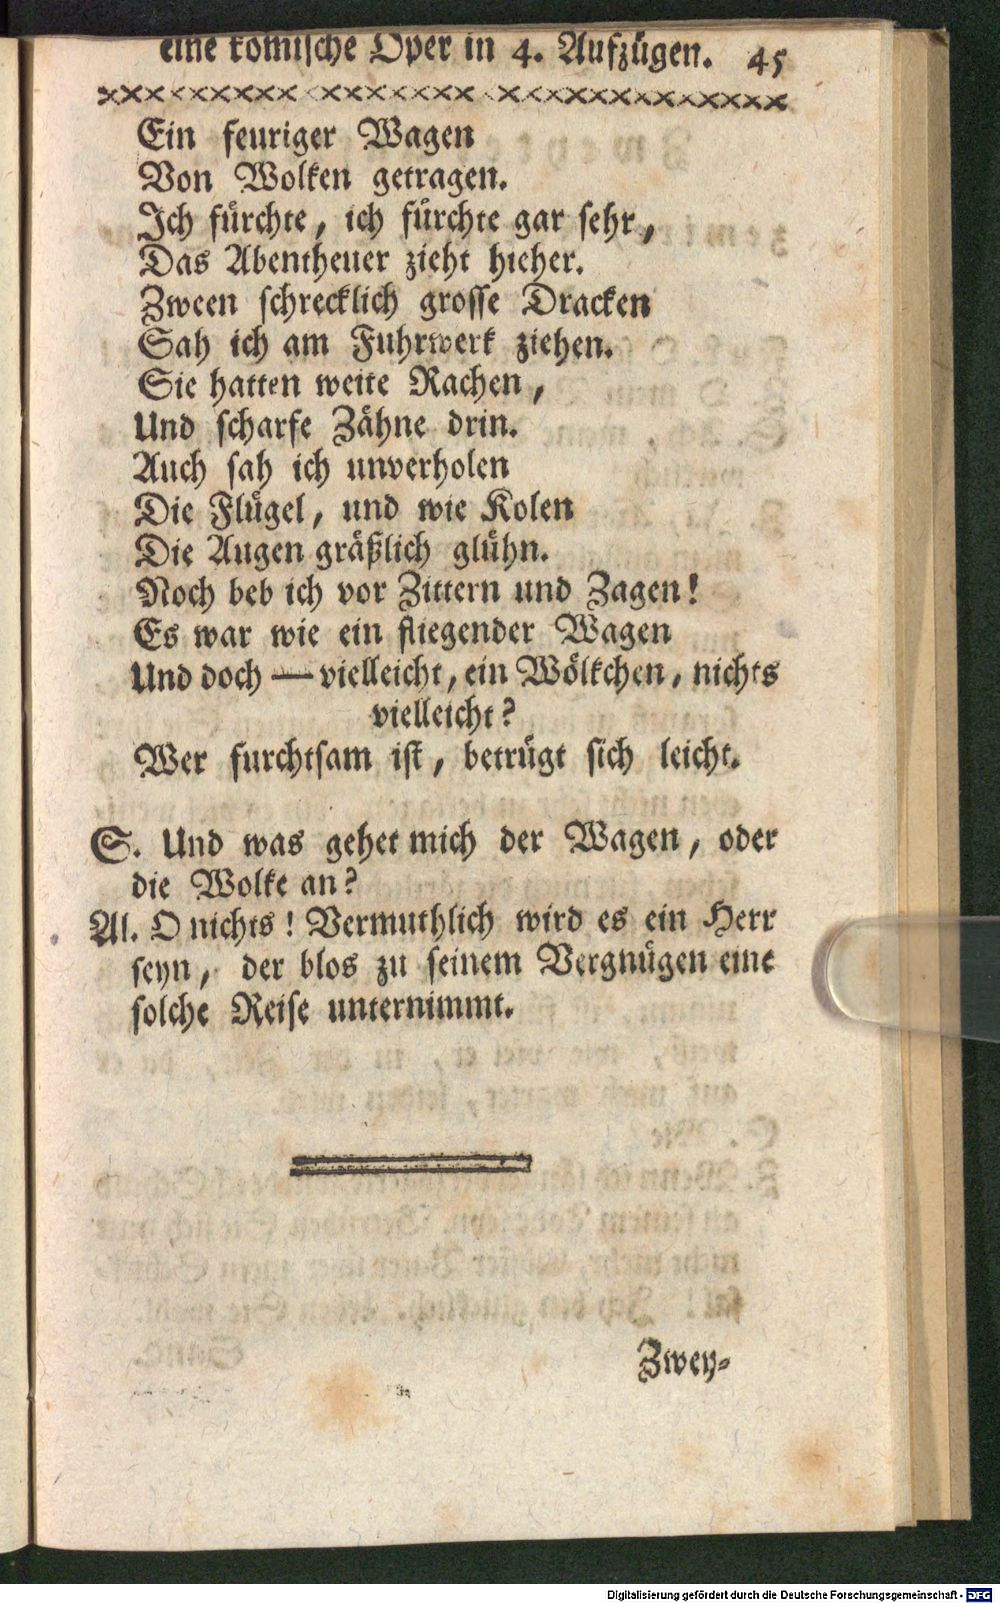 eine komische Oper in 4. Aufzügen. 45
Ein feuriger Wagen
Von Wolken getragen.
Ich fürchte, ich fürchte gar sehr,
Das Abentheuer zieht hieher.
Zween schrecklich grosse Dracken
Sah ich am Fuhrwerk ziehen.
Sie hatten weite Rachen,
Und scharfe Zähne drin.
Auch sah ich unverholen
Die Flügel, und wie Kolen
Die Augen gräßlich glühn.
Noch beb ich vor Zittern und Zagen!
Es war wie ein fliegender Wagen
Und doch — vielleicht, ein Wölkchen, nichts
vielleicht?
Wer furchtsam ist, betrügt sich leicht.
S. Und was gehet mich der Wagen, oder
die Wolke an?
Al. O nichts! Vermuthlich wird es ein Herr
seyn, der blos zu seinem Vergnügen eine
solche Reise unternimmt.
Zwey-
Digitalisierung gefördert durch die Deutsche Forschungsgemeinschaft - DFG